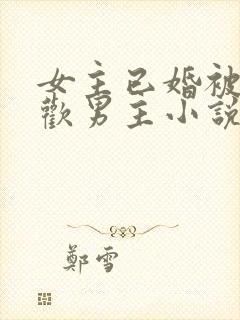 女主已婚被
歡男主小說
鄭雪